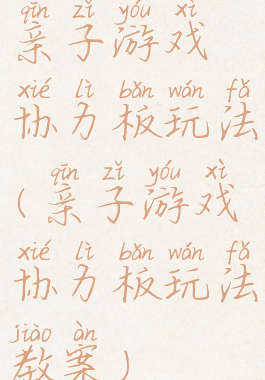 qīn zǐ yóu xì
亲子游戏
xié lì bǎn wán fǎ
协力板玩法
qīn zǐ yóu xì
（亲子游戏
xié lì bǎn wán fǎ
协力板玩法
jiào àn
教案）